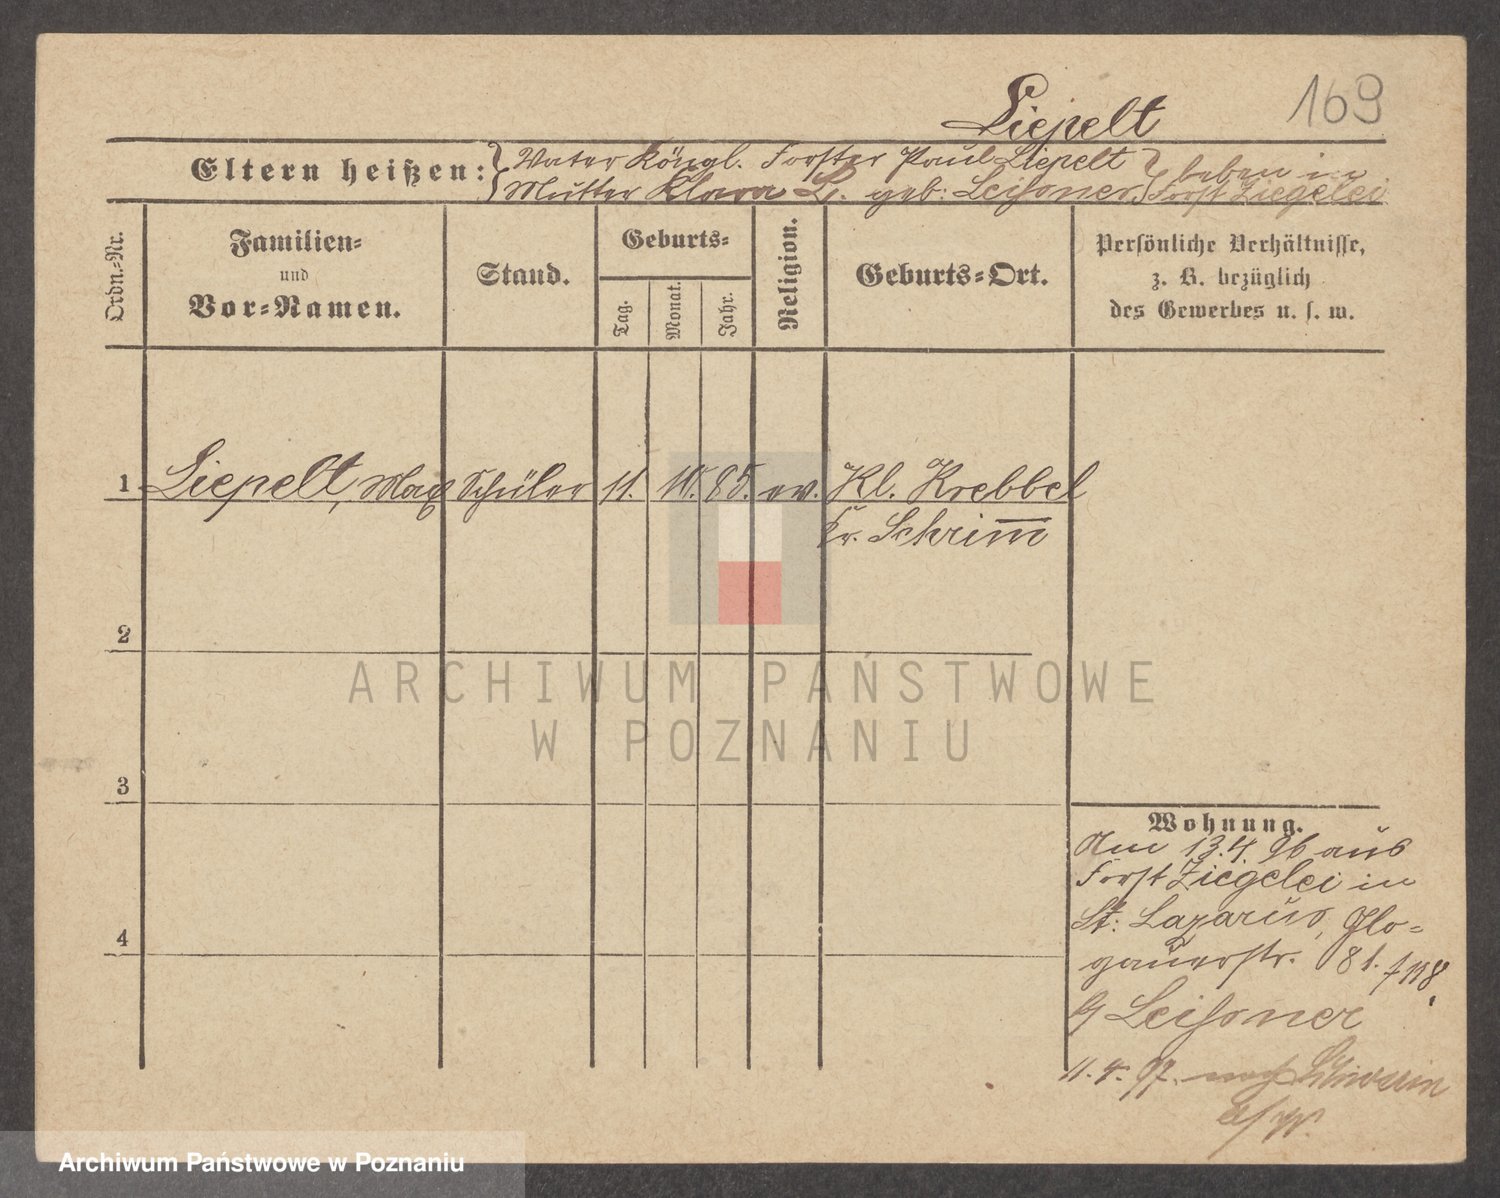 Liepelt
169
Eltern heißen: Vater Königl. Förster Paul Liepelt
Mutter Klara L. geb: Leißner
leben in
Forst Ziegelei
Ordn.-Nr.
Familien-
und
Vor-Namen.
Stand.
Geburts-
Tag.
Monat.
Jahr.
Religion.
Geburts-Ort.
Persönliche Verhältnisse,
z. B. bezüglich
des Gewerbes u. s. w.
1 Liepelt, Max Schüler 11. 10. 85. ev. Kl. Krebbel
Kr. Schrimm
2
3
4
Wohnung.
Am 13.4. 96 aus
Forst Ziegelei in
St: Lazarus, Glo-
gauerstr. 81.
b/ Leißner
11. 4. 97. nach Schwerin
a/W.
ARCHIWUM PAŃSTWOWE
W POZNANIU
Archiwum Państwowe w Poznaniu